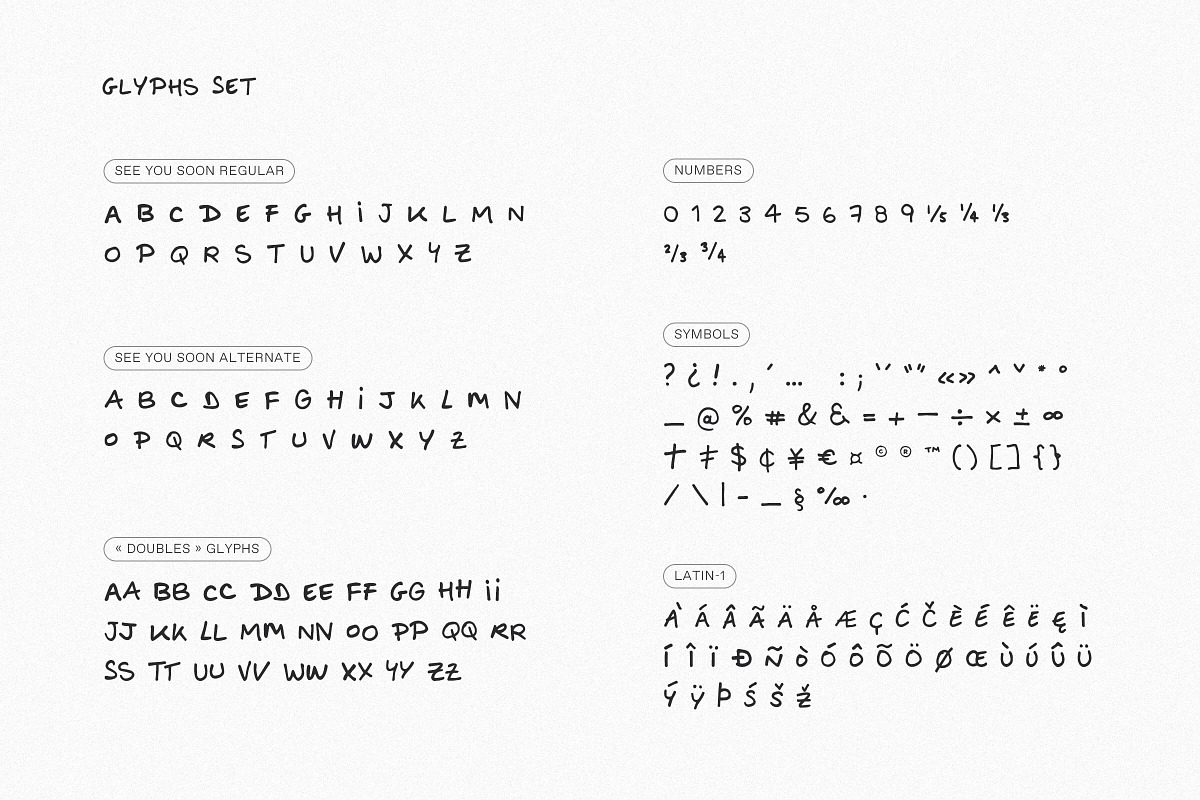 GLYPHS SET
SEE YOU SOON REGULAR
A B C D E F G H i J K L M N
O P Q R S T U V W X Y Z
SEE YOU SOON ALTERNATE
A B C D E F G H i J K L M N
O P Q R S T U V W X Y Z
« DOUBLES » GLYPHS
AA BB CC DD EE FF GG HH ii
JJ KK LL MM NN OO PP QQ RR
SS TT UU VV WW XX YY ZZ
NUMBERS
0 1 2 3 4 5 6 7 8 9 ⅕ ¼ ⅓
⅔ ¾
SYMBOLS
? ¿ ! . , ´ … : ; ‘ ’ “ ” « » ^ ˅ * °
_ @ % # & & = + — ÷ × ± ∞
† ‡ $ ¢ ¥ € ¤ © ® ™ ( ) [ ] { }
/ \ | - _ § ‰ ·
LATIN-1
À Á Â Ã Ä Å Æ Ç Ć Č È É Ê Ë Ę Ì
Í Î Ï Ð Ñ Ò Ó Ô Õ Ö Ø Œ Ù Ú Û Ü
Ý Ÿ Þ Ś Š Ž